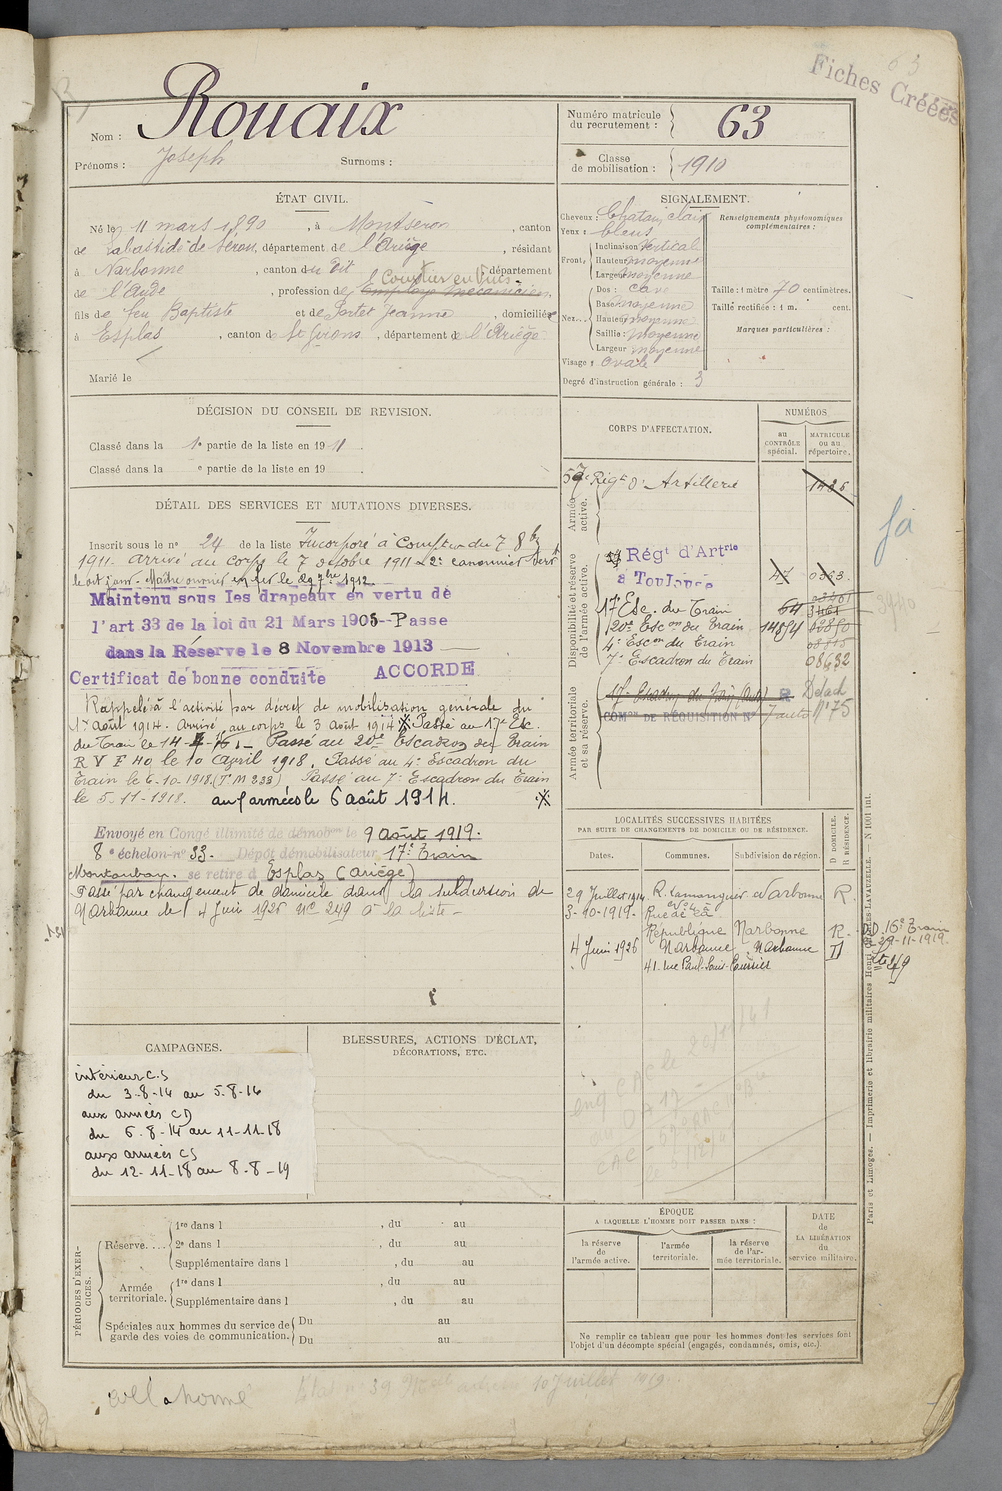 63
Fiches Créées
Nom : Rouaix
Prénoms : Joseph Surnoms :
Numéro matricule du recrutement : 63
Classe de mobilisation : 1910
ÉTAT CIVIL.
Né le 11 mars 1890, à Montseron, canton
de Labastide de Sérou, département de l'Ariège, résidant
à Narbonne, canton du dit, département
Courtier en vins
de l'Aude, profession de Employé mécanicien,
fils de feu Baptiste et de Portet Jeanne, domiciliés
à Esplas, canton de St Girons, département de l'Ariège
Marié le
SIGNALEMENT.
Cheveux : Chatain clair
Yeux : bleus
Front, Inclinaison Vertical
Hauteur moyenne
Largeur moyenne
Nez... Dos : cave
Base moyenne
Hauteur moyenne
Saillie : moyenne
Largeur moyenne
Visage : ovale
Degré d'instruction générale : 3
Renseignements physionomiques complémentaires :
Taille : 1 mètre 70 centimètres.
Taille rectifiée : 1 m. cent.
Marques particulières :
DÉCISION DU CONSEIL DE REVISION.
Classé dans la 1e partie de la liste en 1911.
Classé dans la e partie de la liste en 19 .
CORPS D'AFFECTATION.
NUMÉROS
au CONTRÔLE spécial.
MATRICULE ou au répertoire.
Armée active.
57e Régt d'Artillerie 1426
Disponibilité et réserve de l'armée active.
57 Régt d'Artrie
à Toulouse 47 0363
17e Esc. du Train 64
20e Escon du Train 14854 02850
4e Escon du Train
7e Escadron du Train 08432
Armée territoriale et sa réserve.
17e Escadron du Train Détach
COMon DE RÉQUISITION N° 7 auto N°75
DÉTAIL DES SERVICES ET MUTATIONS DIVERSES.
Inscrit sous le n° 24 de la liste Incorporé à compter du 7 8bre
1911. arrivé au corps le 7 octobre 1911 & 2e canonnier servt
le dit jour. Maître ouvrier en fer le 29 9bre 1912
Maintenu sous les drapeaux en vertu de
l'art 33 de la loi du 21 Mars 1905 -- Passe
dans la Réserve le 8 Novembre 1913
Certificat de bonne conduite ACCORDÉ
Rappelé à l'activité par décret de mobilisation générale du
1er Août 1914. Arrivé au corps le 3 Août 1914 Passé au 17e Esc.
Passé au 20e Escadron du Train
R V F 40, le 10 Avril 1918. Passé au 4e Escadron du
Train le 6-10-1918. Passé au 7e Escadron du Train
le 5-11-1918. aux armées le 6 août 1914.
Envoyé en Congé illimité de démobon le 9 Août 1919.
8e échelon n° 33. Dépôt démobilisateur 17e Train
Montauban. se retire à Esplas (Ariège)
Passé par changement de domicile dans la subdivision de
Narbonne le 4 Juin 1926 n° 249 à la liste
LOCALITÉS SUCCESSIVES HABITÉES
PAR SUITE DE CHANGEMENTS DE DOMICILE OU DE RÉSIDENCE.
Dates. Communes. Subdivision de région. D. DOMICILE. R. RÉSIDENCE.
29 Juillet 1914 R. Lamourguier Narbonne R.
3-10-1919. Rue de la
République Narbonne R.
4 Juin 1926 Narbonne Narbonne D
41. rue Paul-Louis-Courrier
16e Train
29-11-1919.
CAMPAGNES.
intérieur C.S
du 3-8-14 au 5-8-14
aux armées CD
du 6-8-14 au 11-11-18
aux armées CS
du 12-11-18 au 8-8-19
BLESSURES, ACTIONS D'ÉCLAT,
DÉCORATIONS, ETC.
PÉRIODES D'EXERCICES.
Réserve.... 1re dans l , du au
2e dans l , du au
Supplémentaire dans l , du au
Armée territoriale. 1re dans l , du au
Supplémentaire dans l , du au
Spéciales aux hommes du service de garde des voies de communication. Du au
Du au
ÉPOQUE
A LAQUELLE L'HOMME DOIT PASSER DANS :
la réserve de l'armée active.
l'armée territoriale.
la réserve de l'armée territoriale.
DATE de LA LIBÉRATION du service militaire.
Ne remplir ce tableau que pour les hommes dont les services font
l'objet d'un décompte spécial (engagés, condamnés, omis, etc.).
Paris et Limoges. — Imprimerie et librairie militaires Henri CHARLES-LAVAUZELLE. — N 1001 int.